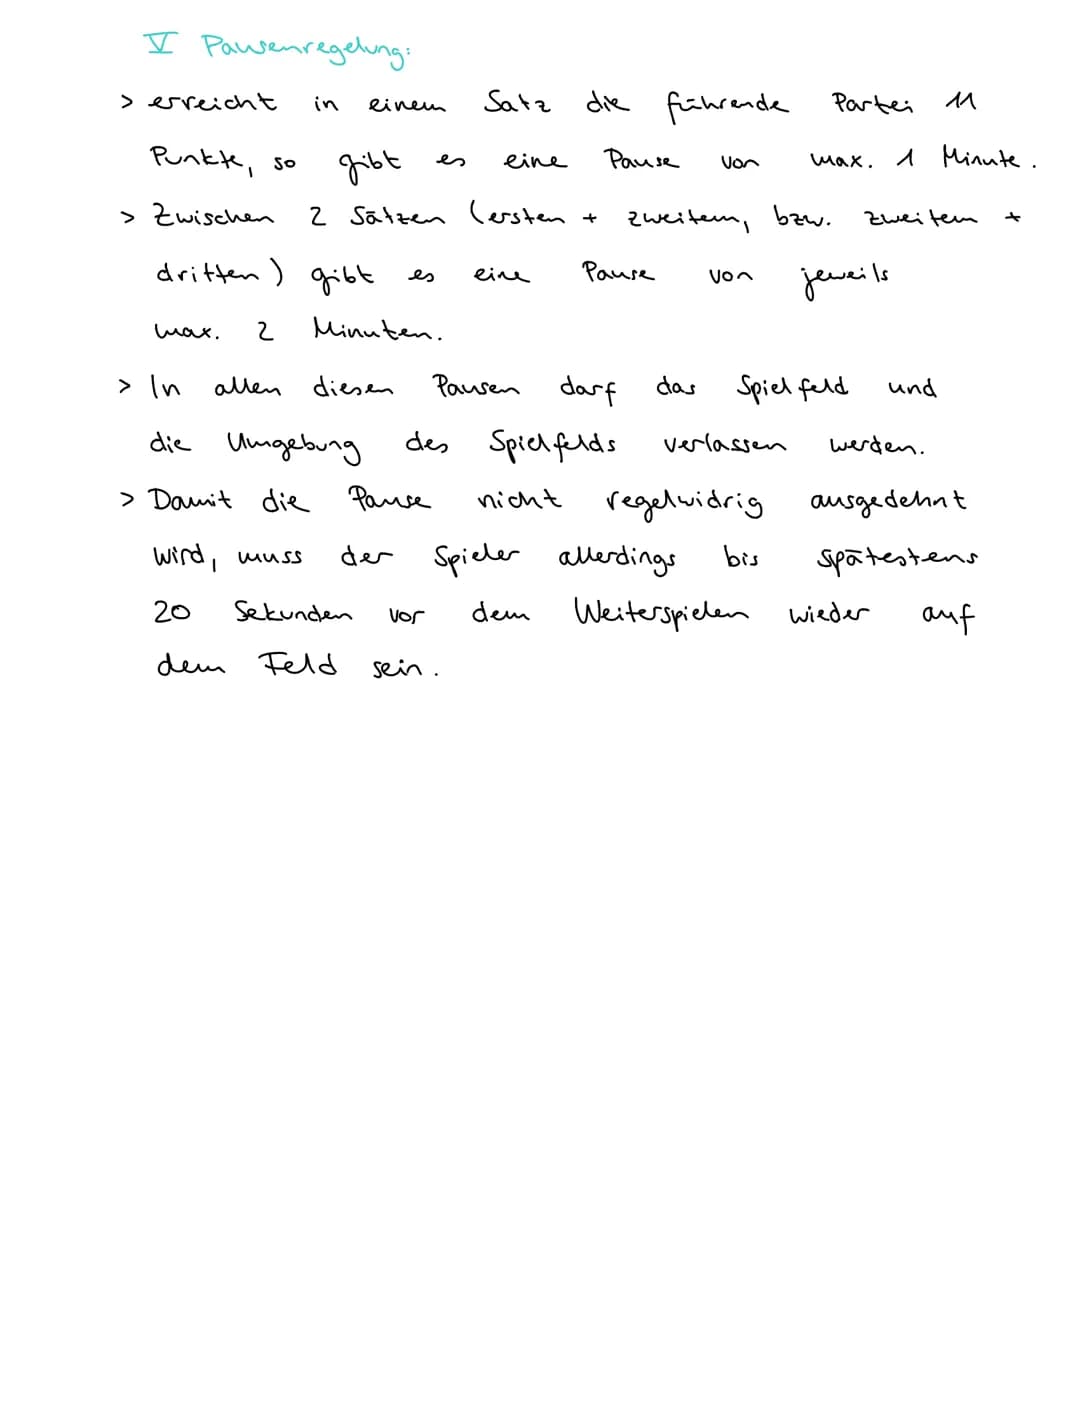 V Pausenregelung:
> erreicht in einem Satz die führende Partei 11
Punkte, so gibt es eine Pause von max. 1 Minute.
> Zwischen 2 Sätzen (ersten + zweitem, bzw. zweitem +
dritten) gibt es eine Pause von jeweils
max. 2 Minuten.
> In allen diesen Pausen darf das Spielfeld und
die Umgebung des Spielfelds verlassen werden.
> Damit die Pause nicht regelwidrig ausgedehnt
wird, muss der Spieler allerdings bis spätestens
20 Sekunden vor dem Weiterspielen wieder auf
dem Feld sein.